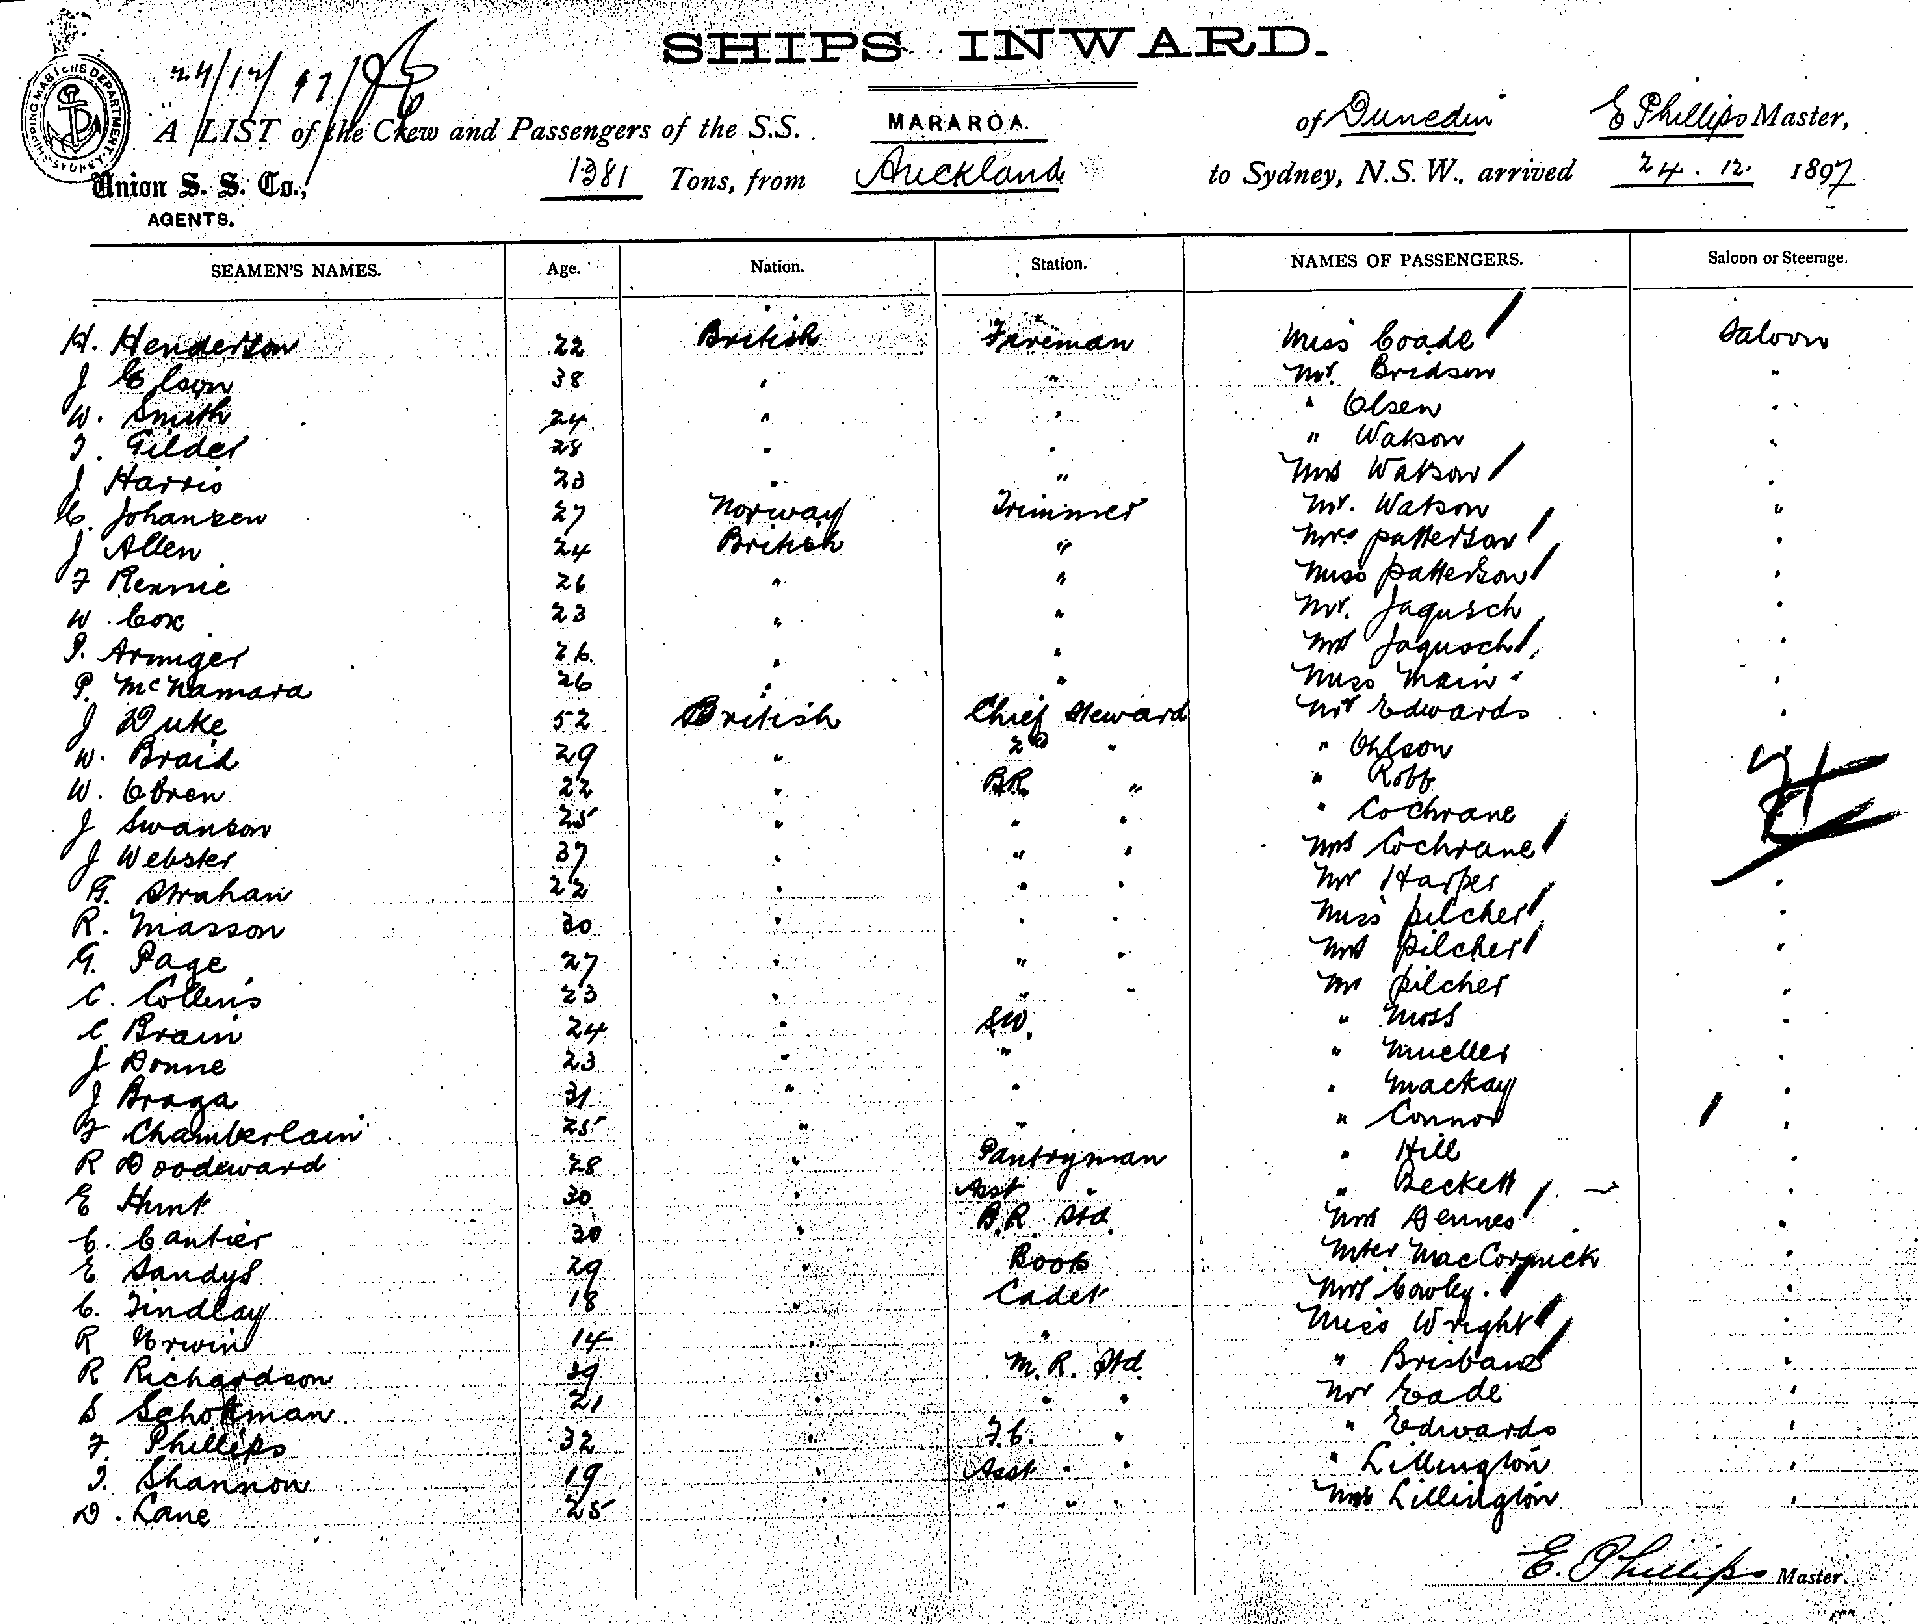 SHIPS INWARD.
24/12/97
SHIPPING MASTER'S DEPARTMENT
A LIST of the Crew and Passengers of the S.S. MARAROA. of Dunedin E Phillips Master,
Union S. S. Co., AGENTS. 1381 Tons, from Auckland to Sydney, N.S.W., arrived 24. 12. 1897
SEAMEN'S NAMES. Age. Nation. Station. NAMES OF PASSENGERS. Saloon or Steerage.
H. Henderson 22 British Fireman Miss Coade Saloon
J Elson 38 " " Mr. Bridson "
W. Smith 24 " " " Olsen "
T. Gilder 28 " " " Watson "
J Harris 23 " " Mrs Watson "
C. Johansen 27 Norway Trimmer Mr. Watson "
J Allen 24 British " Mrs Patterson "
F Rennie 26 " " Miss Patterson "
W. Cox 23 " " Mr. Jagusch "
P. Armiger 26 " " Mrs Jagusch "
P. McNamara 26 " " Miss Main "
J Duke 52 British Chief Steward Mr Edwards "
W. Braid 29 " 2nd " " Ohlson
W. Obren 22 " B.R. " " Robb
J Swanson 25 " " " " Cochrane
J Webster 37 " " " Mrs Cochrane
G. Strahan 22 " " " Mr Harper "
R. Masson 30 " " " Miss Pilcher "
G. Page 27 " " " Mrs Pilcher "
C. Collins 23 " " " Mr Pilcher "
C Brain 24 " S.W. " Moss "
J Donne 23 " " " Mueller "
J Braga 31 " " " Mackay "
F Chamberlain 25 " " " Connor "
R Doodeward 28 " Pantryman " Hill "
E Hunt 30 " Asst " " Beckett "
C. Cantier 30 " B.R. Std. Mrs Dennes "
E Sandys 29 " Book Mster MacCormick "
C. Findlay 18 " Cadet Mrs Cowley. "
R Urwin 14 " " Miss Wright "
R Richardson 39 " M.R. Std. " Brisband "
S Schokman 21 " " " Mr Eade "
F. Phillips 32 " F.C. " " Edwards "
T. Shannon 19 " Asst " " " Lillington "
D. Lane 25 " " " " Mrs Lillington "
E. Phillips Master.